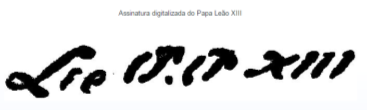 Assinatura digitalizada do Papa Leão XIII
Leo PP. XIII